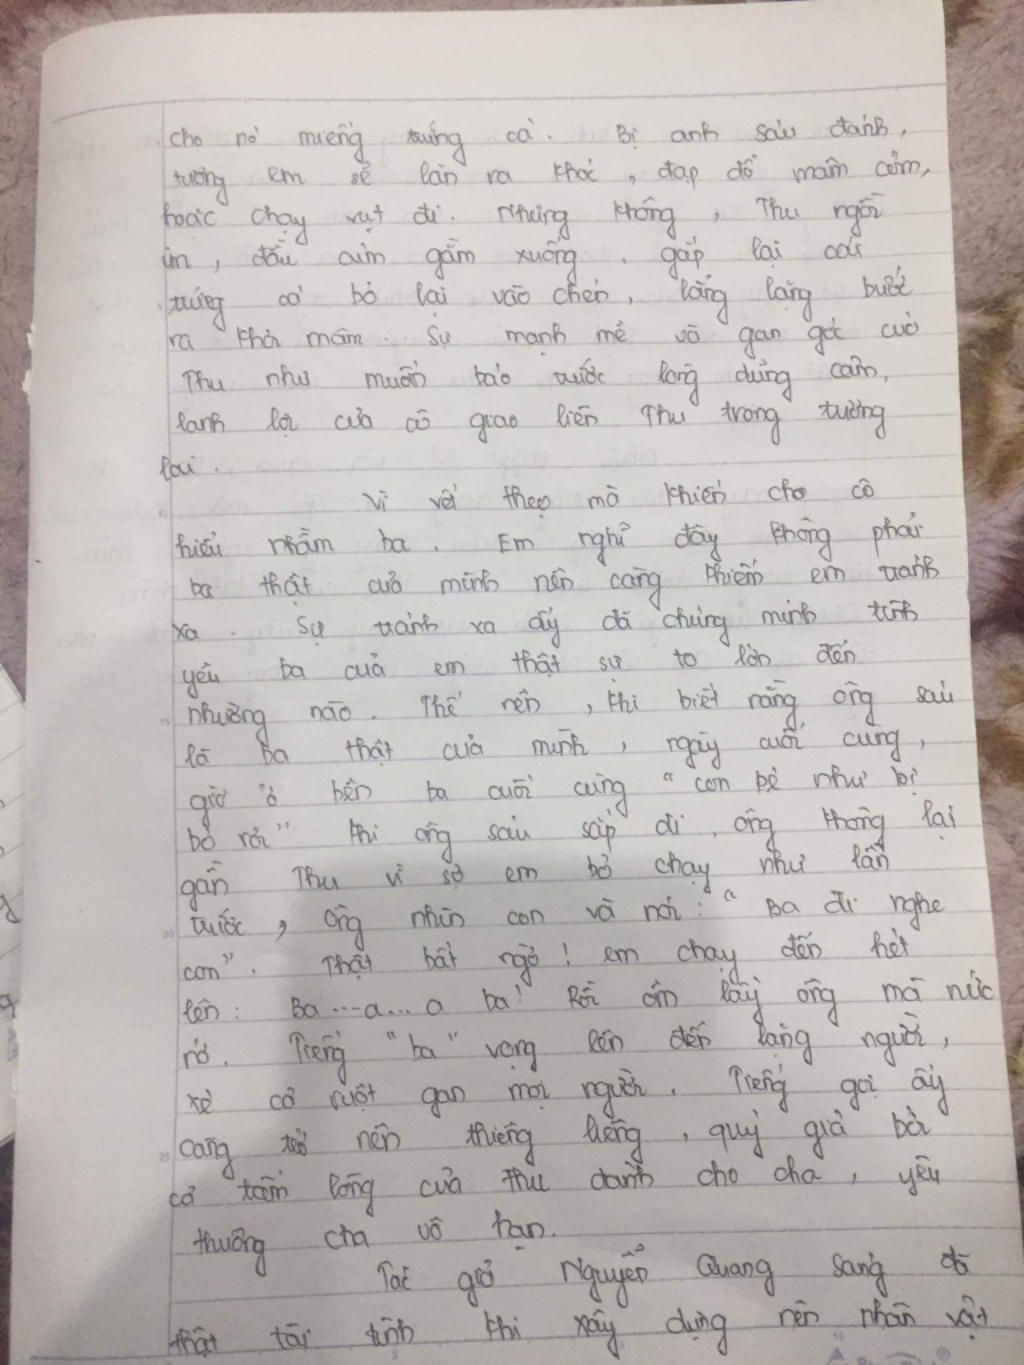 cho nó miếng trứng cá. Bị anh sáu đánh,
tưởng em sẽ lăn ra khóc, đạp đổ mâm cơm,
hoặc chạy vụt đi. Nhưng không, Thu ngồi
im, đầu cúi gằm xuống, gắp lại cái
trứng cá bỏ lại vào chén, lẳng lặng bước
ra khỏi mâm. Sự mạnh mẽ và gan góc của
Thu như muốn báo trước lòng dũng cảm,
lanh lợi của cô giao liên Thu trong tương
lai.
Vì vết thẹo mà khiến cho cô
hiểu nhầm ba. Em nghĩ đây không phải
ba thật của mình nên càng khiến em tránh
xa. Sự tránh xa ấy đã chứng minh tình
yêu ba của em thật sự to lớn đến
nhường nào. Thế nên, khi biết rằng ông sáu
là ba thật của mình, ngày cuối cùng,
giờ ở bên ba cuối cùng "con bé như bị
bỏ rơi" khi ông sáu sắp đi, ông không lại
gần Thu vì sợ em bỏ chạy như lần
trước, ông nhìn con và nói: "Ba đi nghe
con". Thật bất ngờ! em chạy đến hét
lên: Ba...a...a ba! Rồi ôm lấy ông mà nức
nở. Tiếng "ba" vang lên đến lặng người,
xé cả ruột gan mọi người. Tiếng gọi ấy
càng nên thiêng liêng, quý giá bởi
cả tấm lòng của Thu dành cho cha, yêu
thương cha vô hạn.
Tác giả Nguyễn Quang Sáng đã
thật tài tình khi xây dựng nên nhân vật